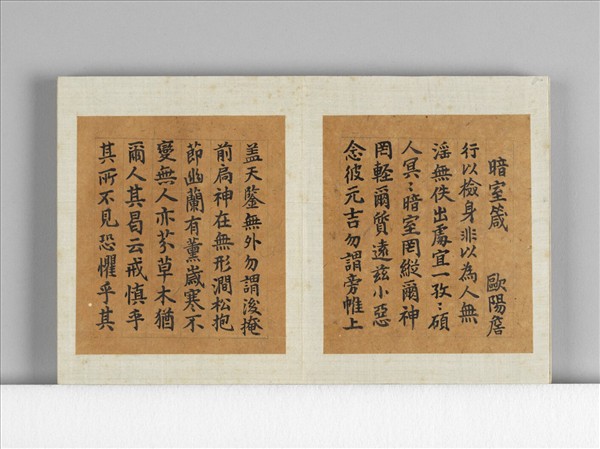 暗室箴 歐陽詹
行以檢身非以為人無
淫無佚出處宜一孜〻碩
人冥〻暗室罔縱爾神
罔輕爾質遠茲小惡
念彼元吉勿謂旁帷上
盖天鑒無外勿謂後掩
前扃神在無形澗松抱
節幽蘭有薰歲寒不
變無人亦芬草木猶
爾人其曷云戒慎乎
其所不見恐懼乎其